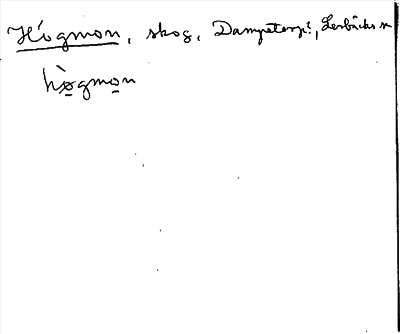 Högmon, skog, Dampetorp?, Lerbäcks sn
hògmon